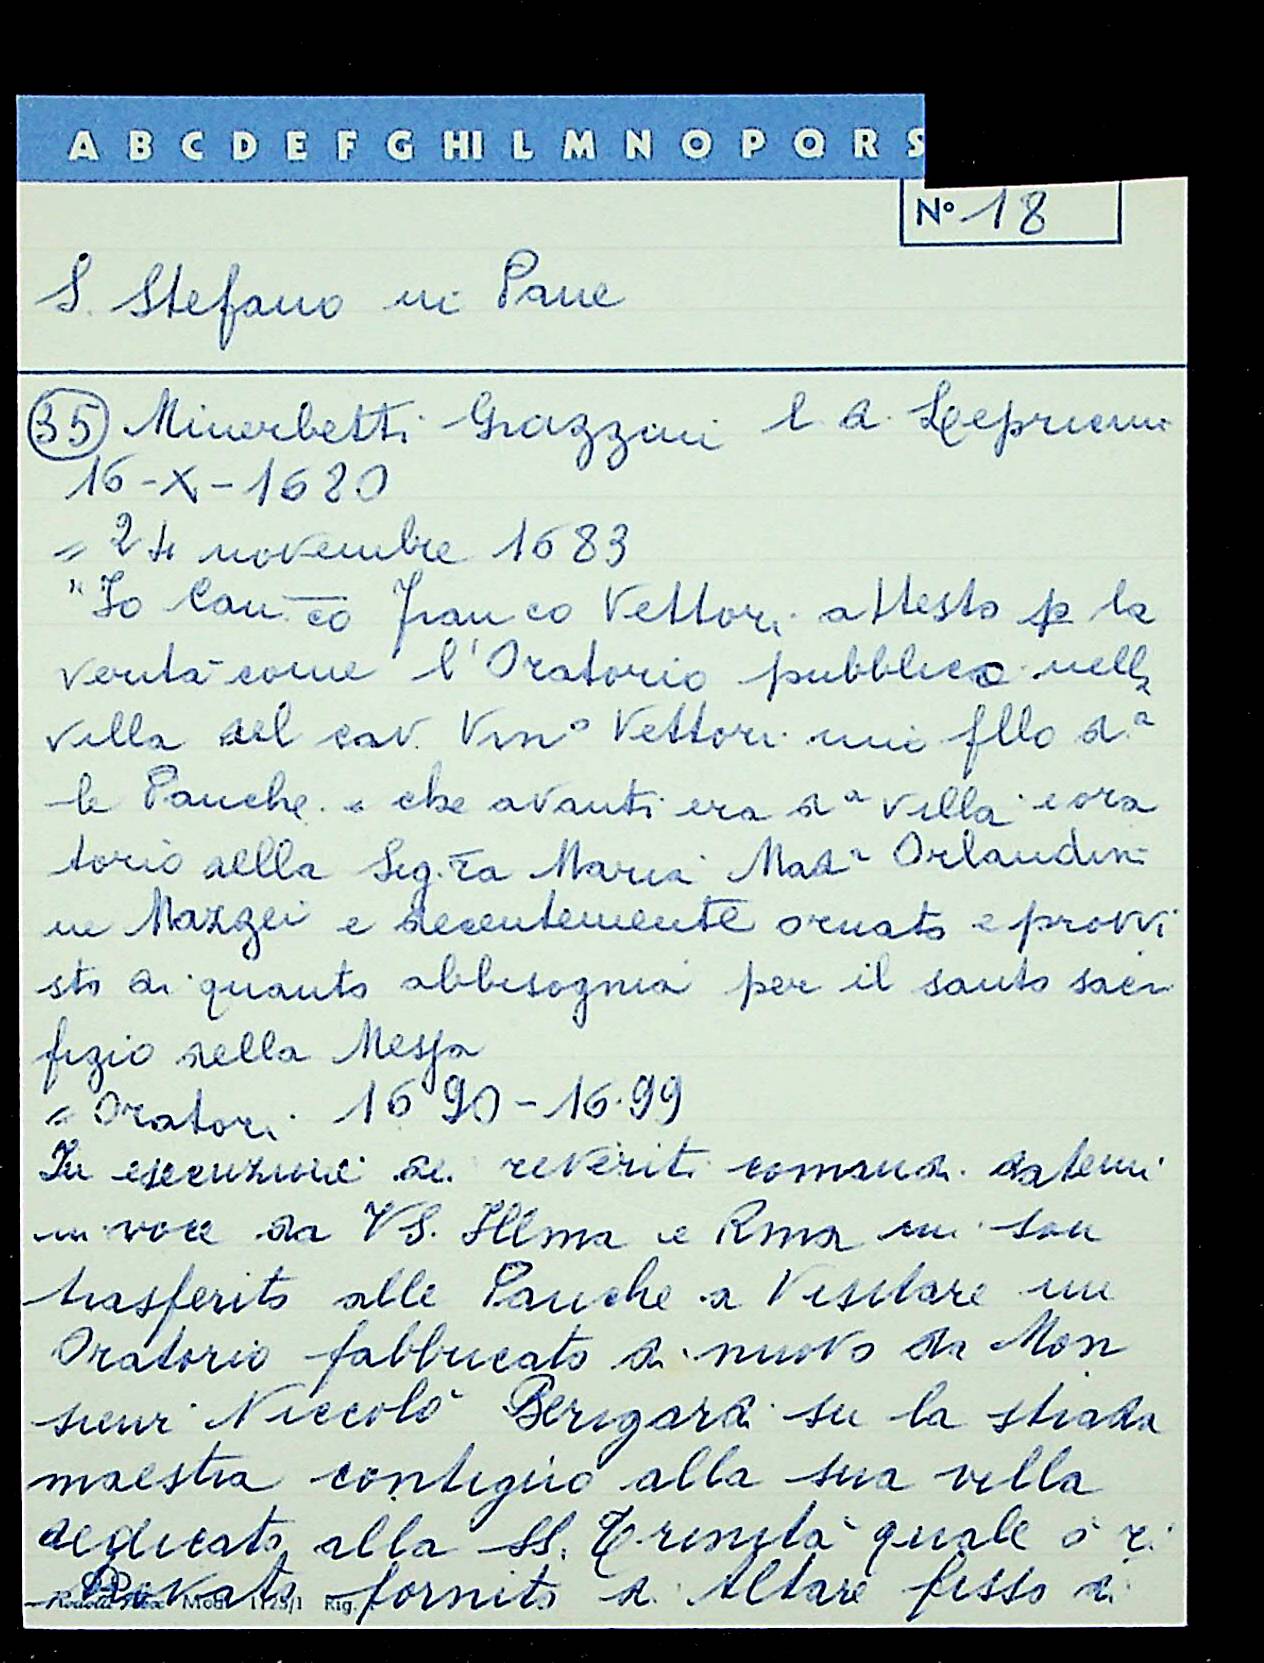 A B C D E F G HI L M N O P Q R S
N° 18
S. Stefano in Pane
35 Minerbetti Grazzini l. a.
16-X-1680
= 24 novembre 1683
"Io Can.co Franco Vettori attesto p la
verità come l'Oratorio pubblico nella
villa del cav. Vin° Vettori mio fllo d.a
le Panche e che avanti era d.a villa e ora
torio della Sig.ra Maria Mad.a Orlandini
ne Mazzei e decentemente ornato e provvi
sto di quanto abbisognia per il santo sacri
fizio della Messa
= Oratori 1690-1699
In esecuzione dei reveriti comandi datemi
in voce da VS. Illma e Rma mi son
trasferito alle Panche a Visitare un
Oratorio fabbricato di nuovo da Mon
sieur Niccolò Berigardi su la strada
maestra contiguo alla sua villa
dedicato alla SS. Trinità quale ò ri
trovato fornito di Altare fisso di
Mod. 1125/1 Rig.